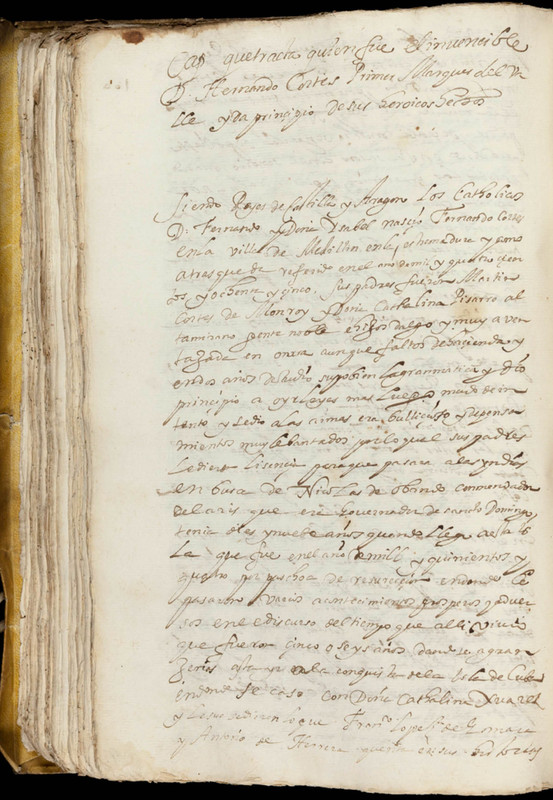 Cap que tracta quien fue el invencible
D. Hernando Cortes Primer Marques del Va
lle y da principio de sus heroicos hechos
Siendo Reyes de Castilla y Aragon Los Catholicos
D. Fernando y Doña Ysabel nascio Fernando Cortes
en la Villa de Medellin en la estremadura y como
atras que de referido en el año de mil y quatrocien
tos y ochenta y cinco, sus padres fueron Martin
Cortes de Monroy y Doña Cathalina Pisarro al
tamirano gente noble e hijos dalgo y muy aven
tajada en onrra aunque faltos de hacienda y
en dos años de estudio supo bien la grammatica y dio
principio a oyr leyes mas luego mudo de in
tento y se dio a las armas era bullicioso y de pensa
mientos muy lebantados por lo qual sus padres
le dieron licencia para que pasara a las yndias
en busca de Nicolas de obando comendador
de laris que era Governador de sancto Domingo
tenia diez y nueve años quando llego a esta is
la que fue en el año de mill y quinientos y
quatro por pascua de resurecçion en donde le
pasaron varios acontecimientos prosperos y adver
sos en el discurso del tiempo que alli vivio
que fueron cinco o seys años dando se a gran
gerias asta yr a la conquista de la Isla de Cuba
en donde se caso con Doña Cathalina Xuarez
y Franco Lopes de Gomara
y Antonio de Herrera quenta en sus historias